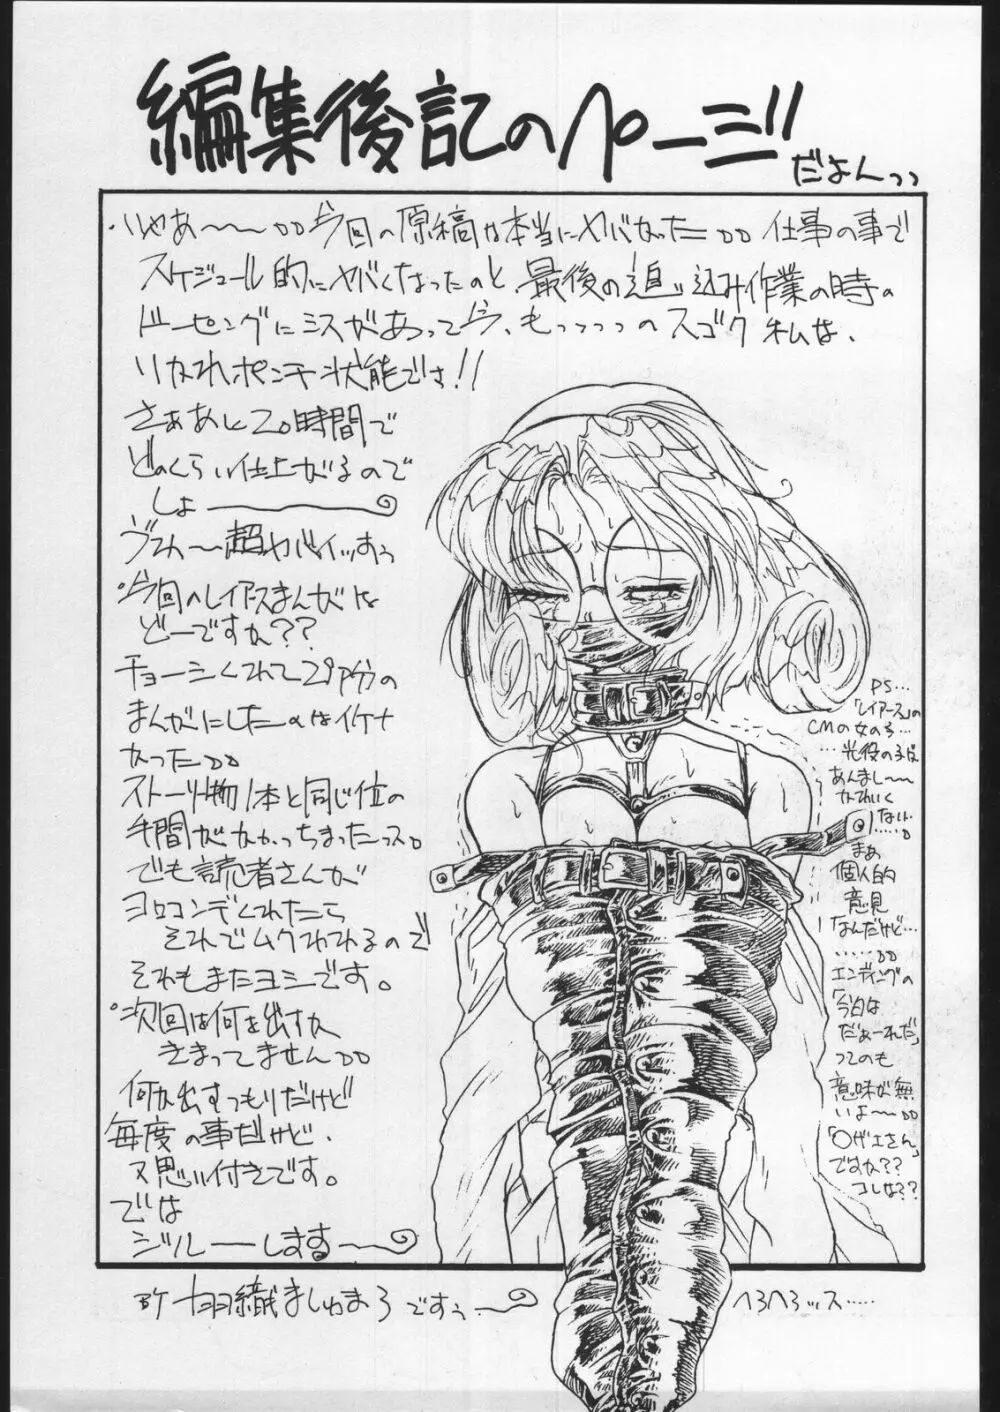 編集後記のページ!!
だよんっっ
・いやあ〜〜〜 今回の原稿は本当にヤバかった 仕事の事で
スケジュール的にヤバくなったのと、最後の追い込み作業の時の
ドーピングにミスがあって今、もっっっっのスゴク私は、
いかれポンチ状態でさ!!
さああと20時間で
どのくらい仕上がるので
しょーーー
超ヤバイッすぅ
・今回のレイアースまんがは
どーですか??
チョーシくれて29P分の
まんがにしたのはイケナ
かった
ストーリー物1本と同じ位の
手間がかかっちまったっス。
でも読者さんが
ヨロコンデくれたら
それでムクわれるので
それもまたヨシです。
・次回は何を出すか
きまってません
何か出すつもりだけど
毎度の事だけど、
又思い付きです。
では
ジルーーします〜
PS…
「レイアース」の
CMの女の子…
…光役の子は
あんまし〜〜
かわいく
ない…
まあ
個人的
意見
なんだけど…
……
エンディングの
「今日は
だぁーれだ」
ってのも
意味が無
いよ〜
「○ザエさん」
ですか??
コレは??
BY 羽織ましゅまろですぅ〜
へろへろッス……